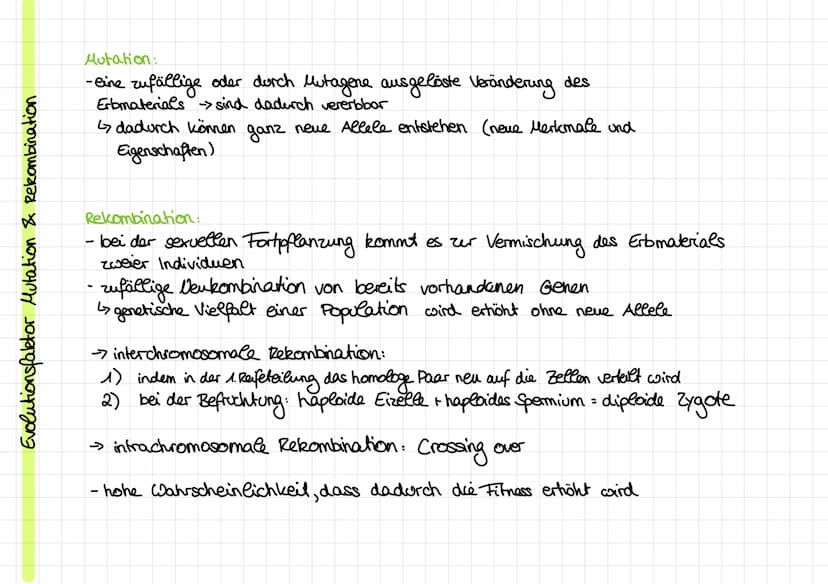 Evolutionsfaktor Mutation & Rekombination
Mutation:
- eine zufällige oder durch Mutagene ausgelöste Veränderung des
Erbmaterials → sind dadurch vererbbar
↳ dadurch können ganz neue Allele entstehen (neue Merkmale und
Eigenschaften)
Rekombination:
- bei der sexuellen Fortpflanzung kommt es zur Vermischung des Erbmaterials
zweier Individuen
- zufällige Neukombination von bereits vorhandenen Genen
↳ genetische Vielfalt einer Population wird erhöht ohne neue Allele
→ interchromosomale Rekombination:
1) indem in der 1. Reifeteilung das homologe Paar neu auf die Zellen verteilt wird
2) bei der Befruchtung: haploide Eizelle + haploides Spermium = diploide Zygote
→ intrachromosomale Rekombination: Crossing over
- hohe Wahrscheinlichkeit, dass dadurch die Fitness erhöht wird